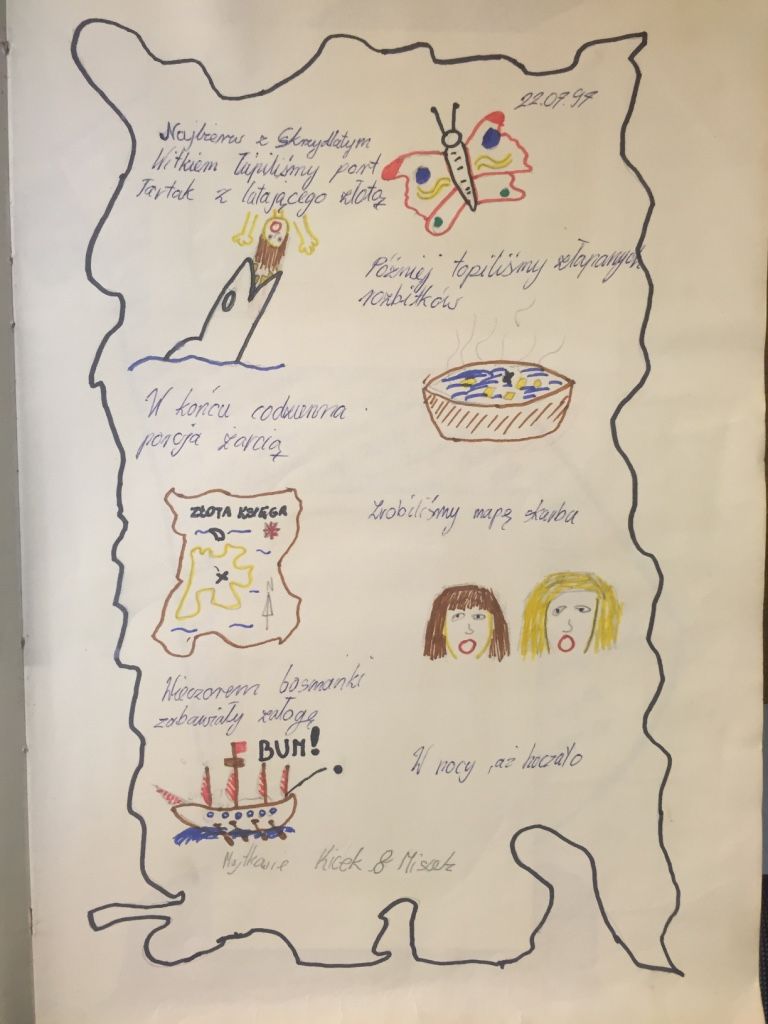 22.07.97
Najpierw z Skrzydlatym
Witkiem łupiliśmy port
Tartak z latającego złota
Później topiliśmy złapanych
rozbitków
W końcu codzienna
porcja żarcia
ZŁOTA KSIĘGA
N
Zrobiliśmy mapę skarba
Wieczorem bosmanki
zabawiały załogę
BUM!
W nocy aż huczało
Majtkowie Kicek & Misiek